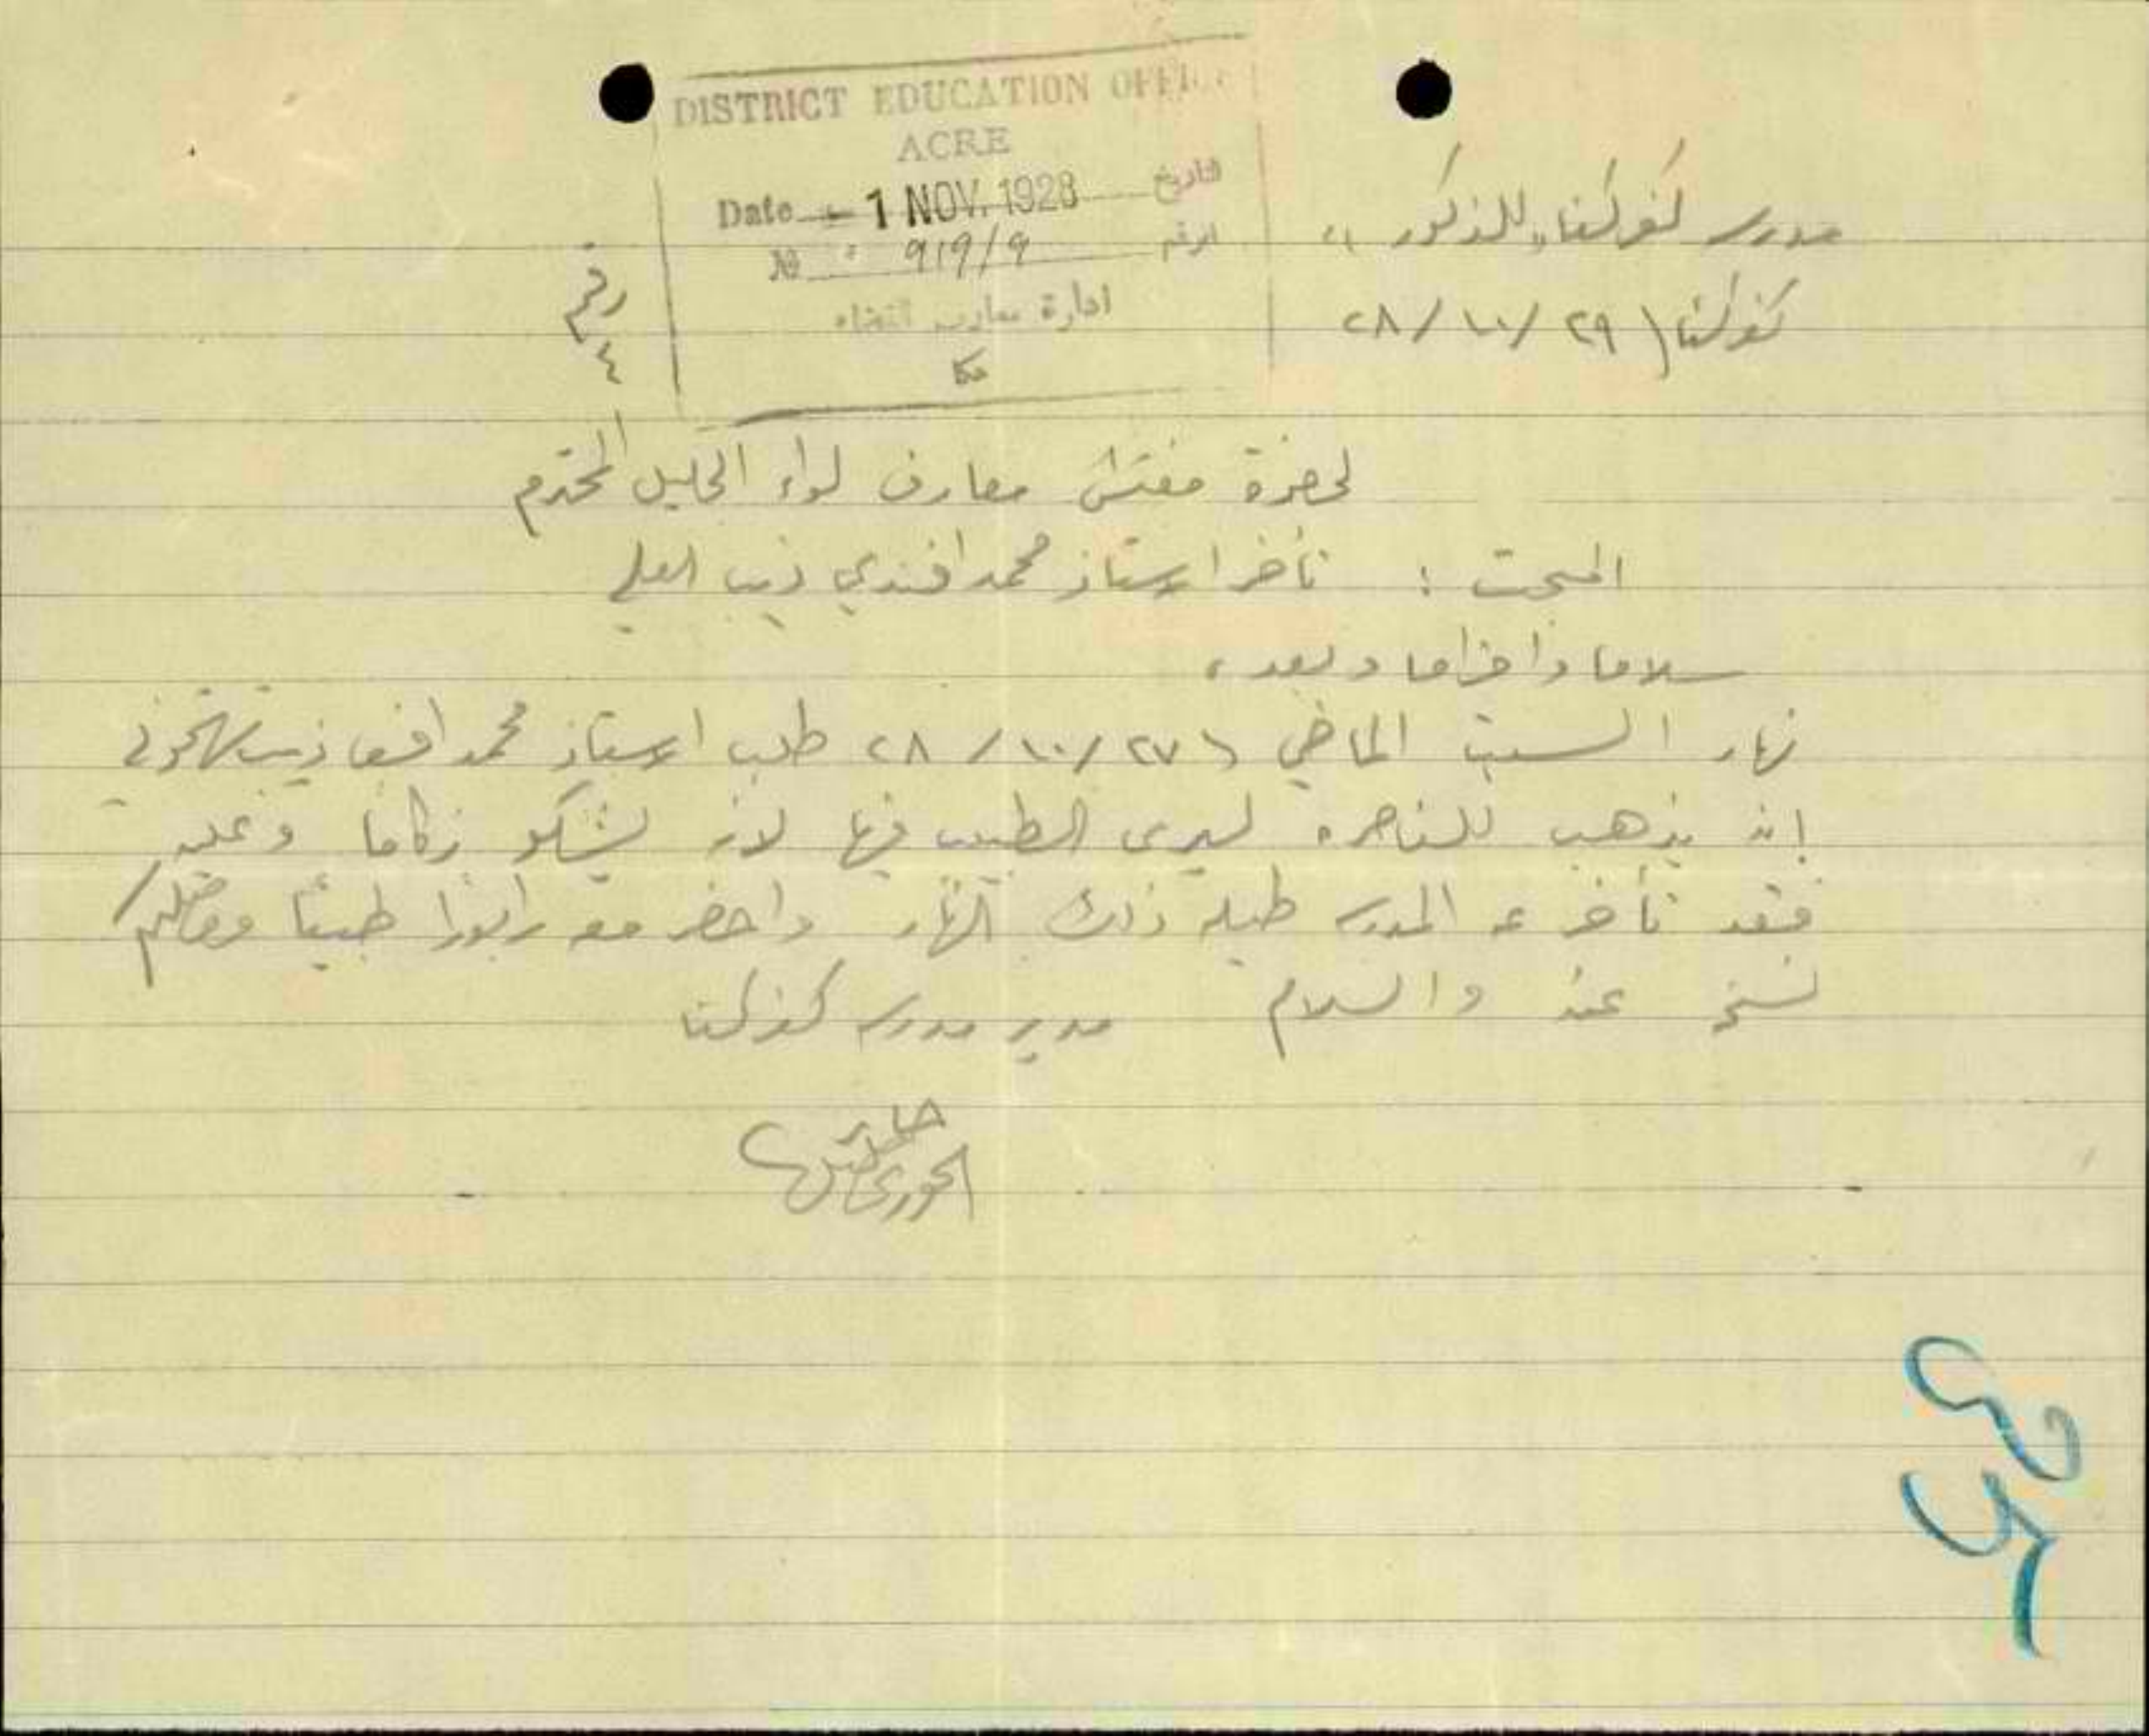 DISTRICT EDUCATION OFFICE
ACRE
Date - 1 NOV. 1928 تاريخ
№ 919/9 الرقم
ادارة معارف القضاء
عكا
رقم
٤
مدرسة كفركنا للذكور
كفركنا ٢٩/١٠/٢٨
لحضرة مفتش معارف لواء الجليل المحترم
المبحث : تأخر الاستاذ محمد افندي ذيب العلي
سلاما واحتراما وبعد،
نهار السبت الماضي ٢٧/١٠/٢٨ طلب الاستاذ محمد افندي ذيب
ان يذهب للناصره ليرى الطبيب فيها لانه يشكو زكاما وعليه
فقد تأخر عن المدرسة طيلة ذلك النهار واحضر معه رابورا طبيا
نسخة عنه والسلام مدير مدرسة كفركنا
الخوري
35